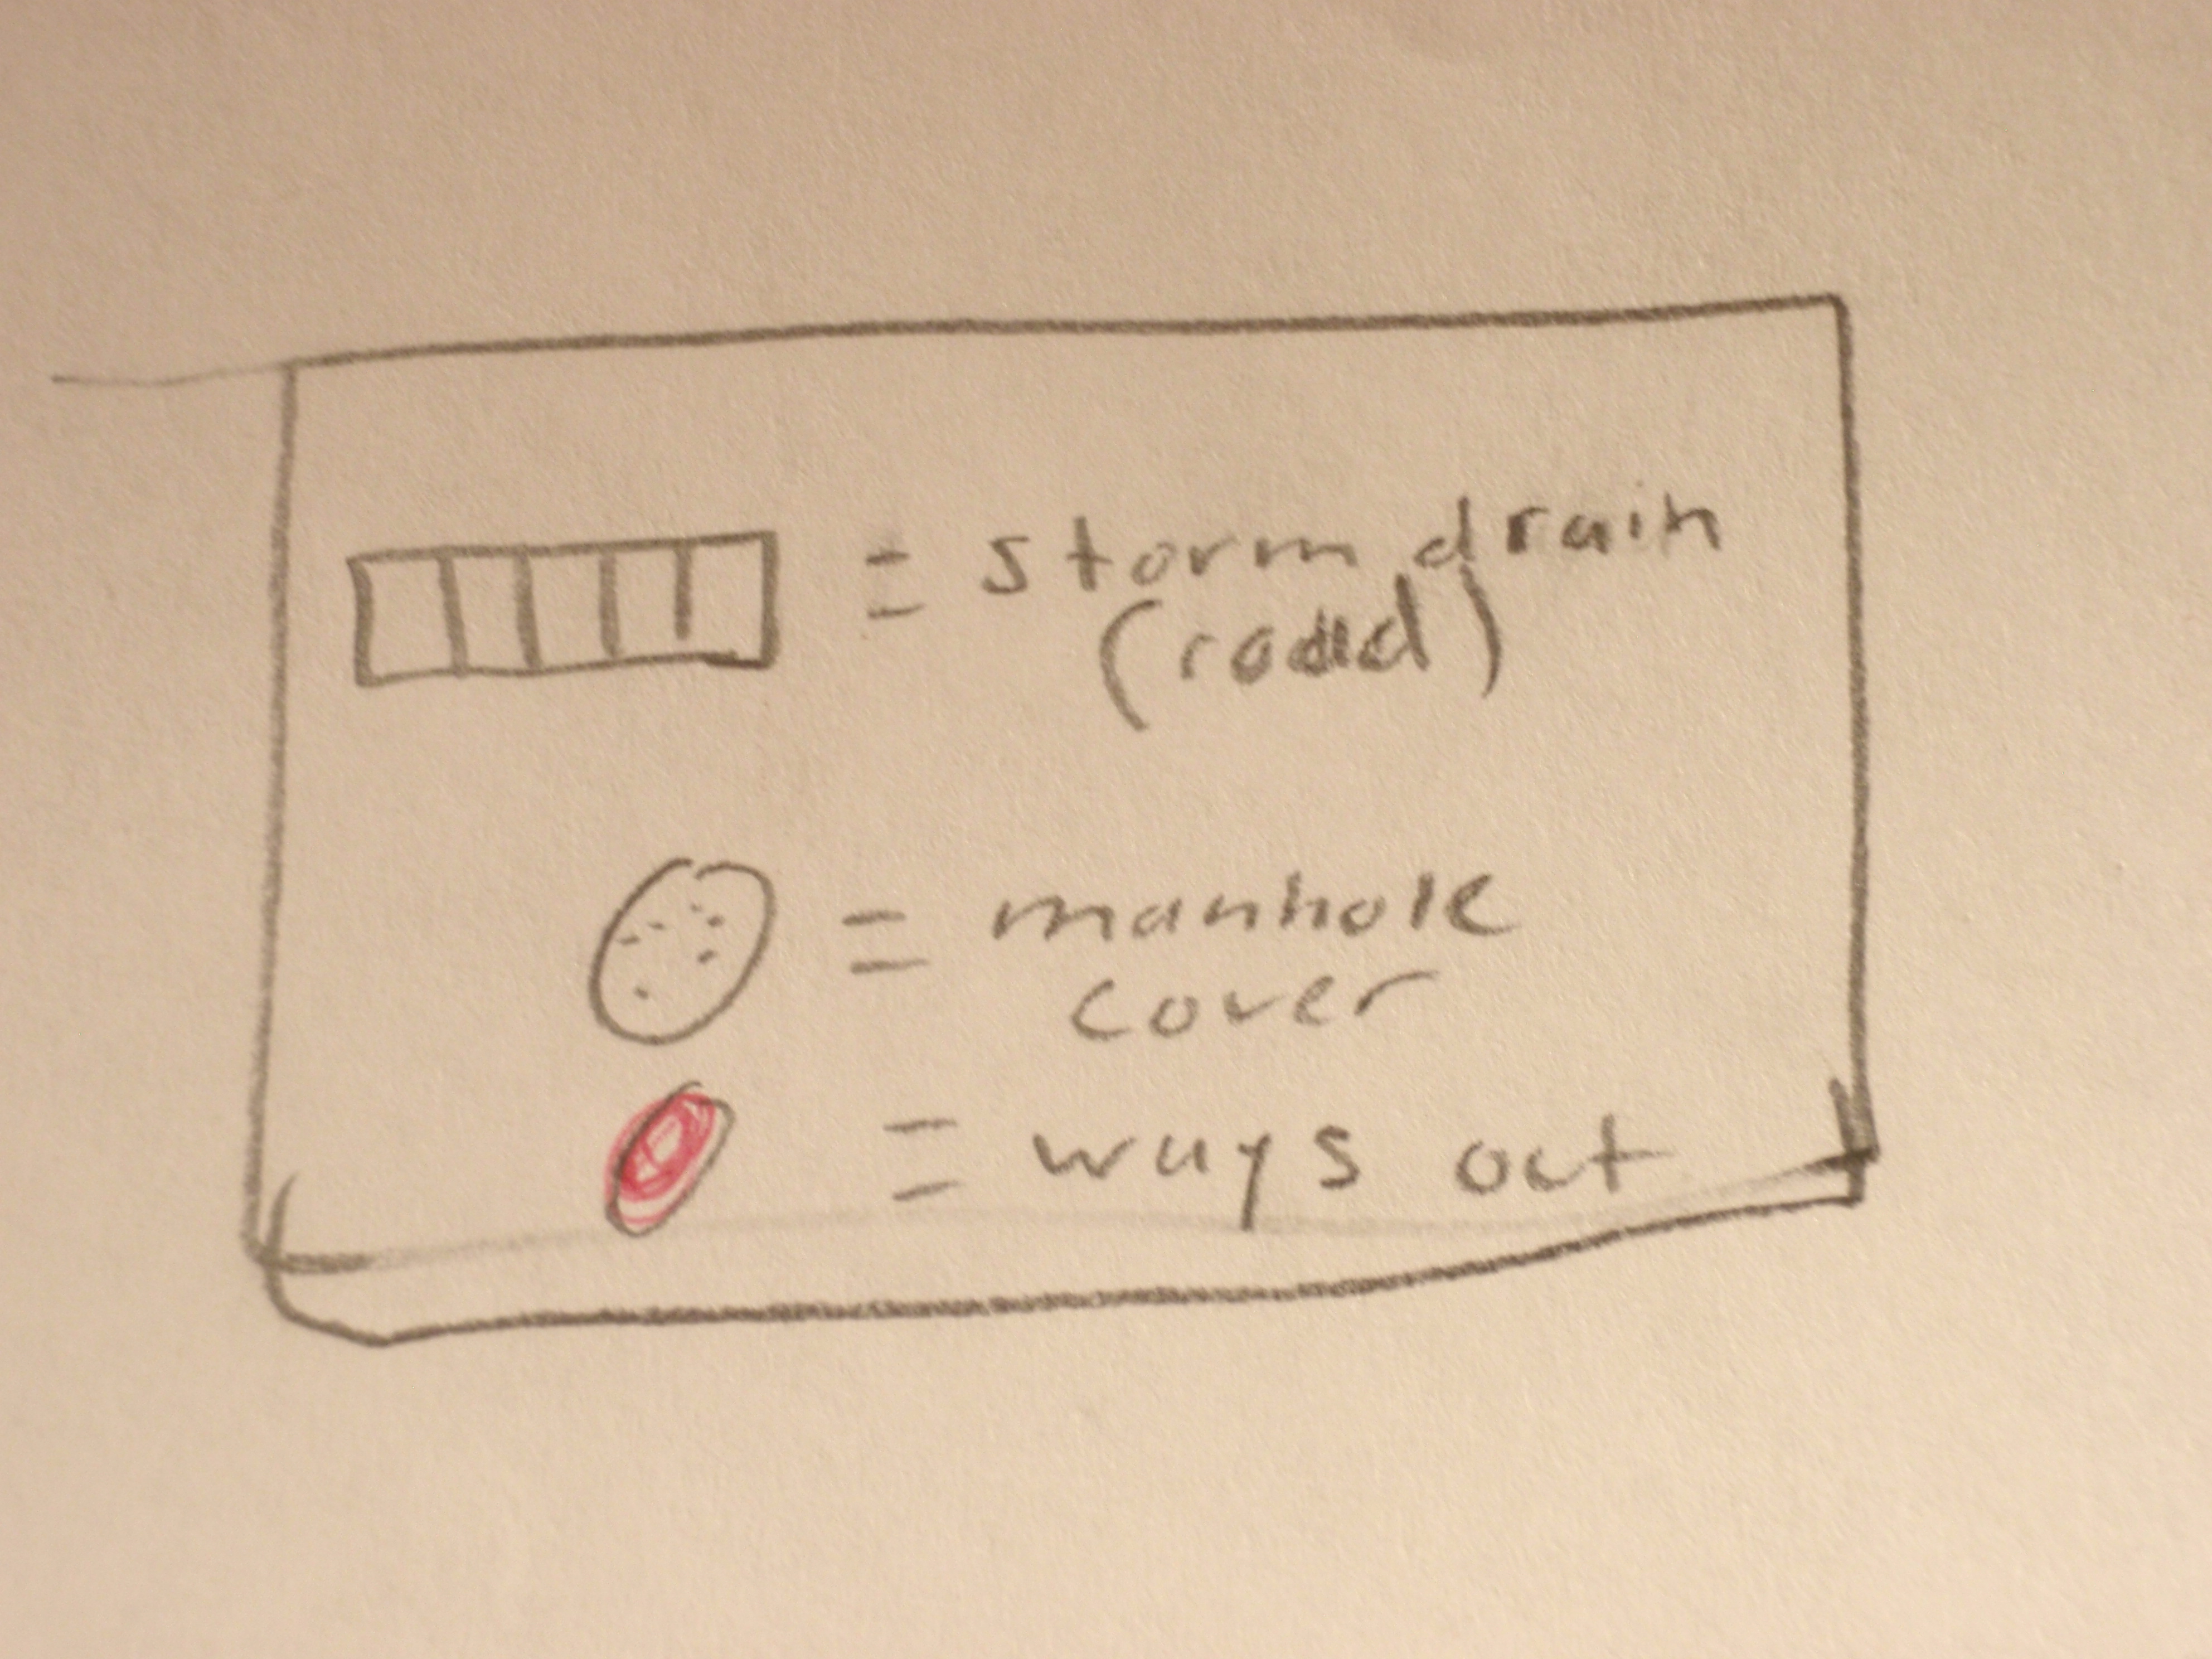 = storm drain
(road)
= manhole
cover
= ways out